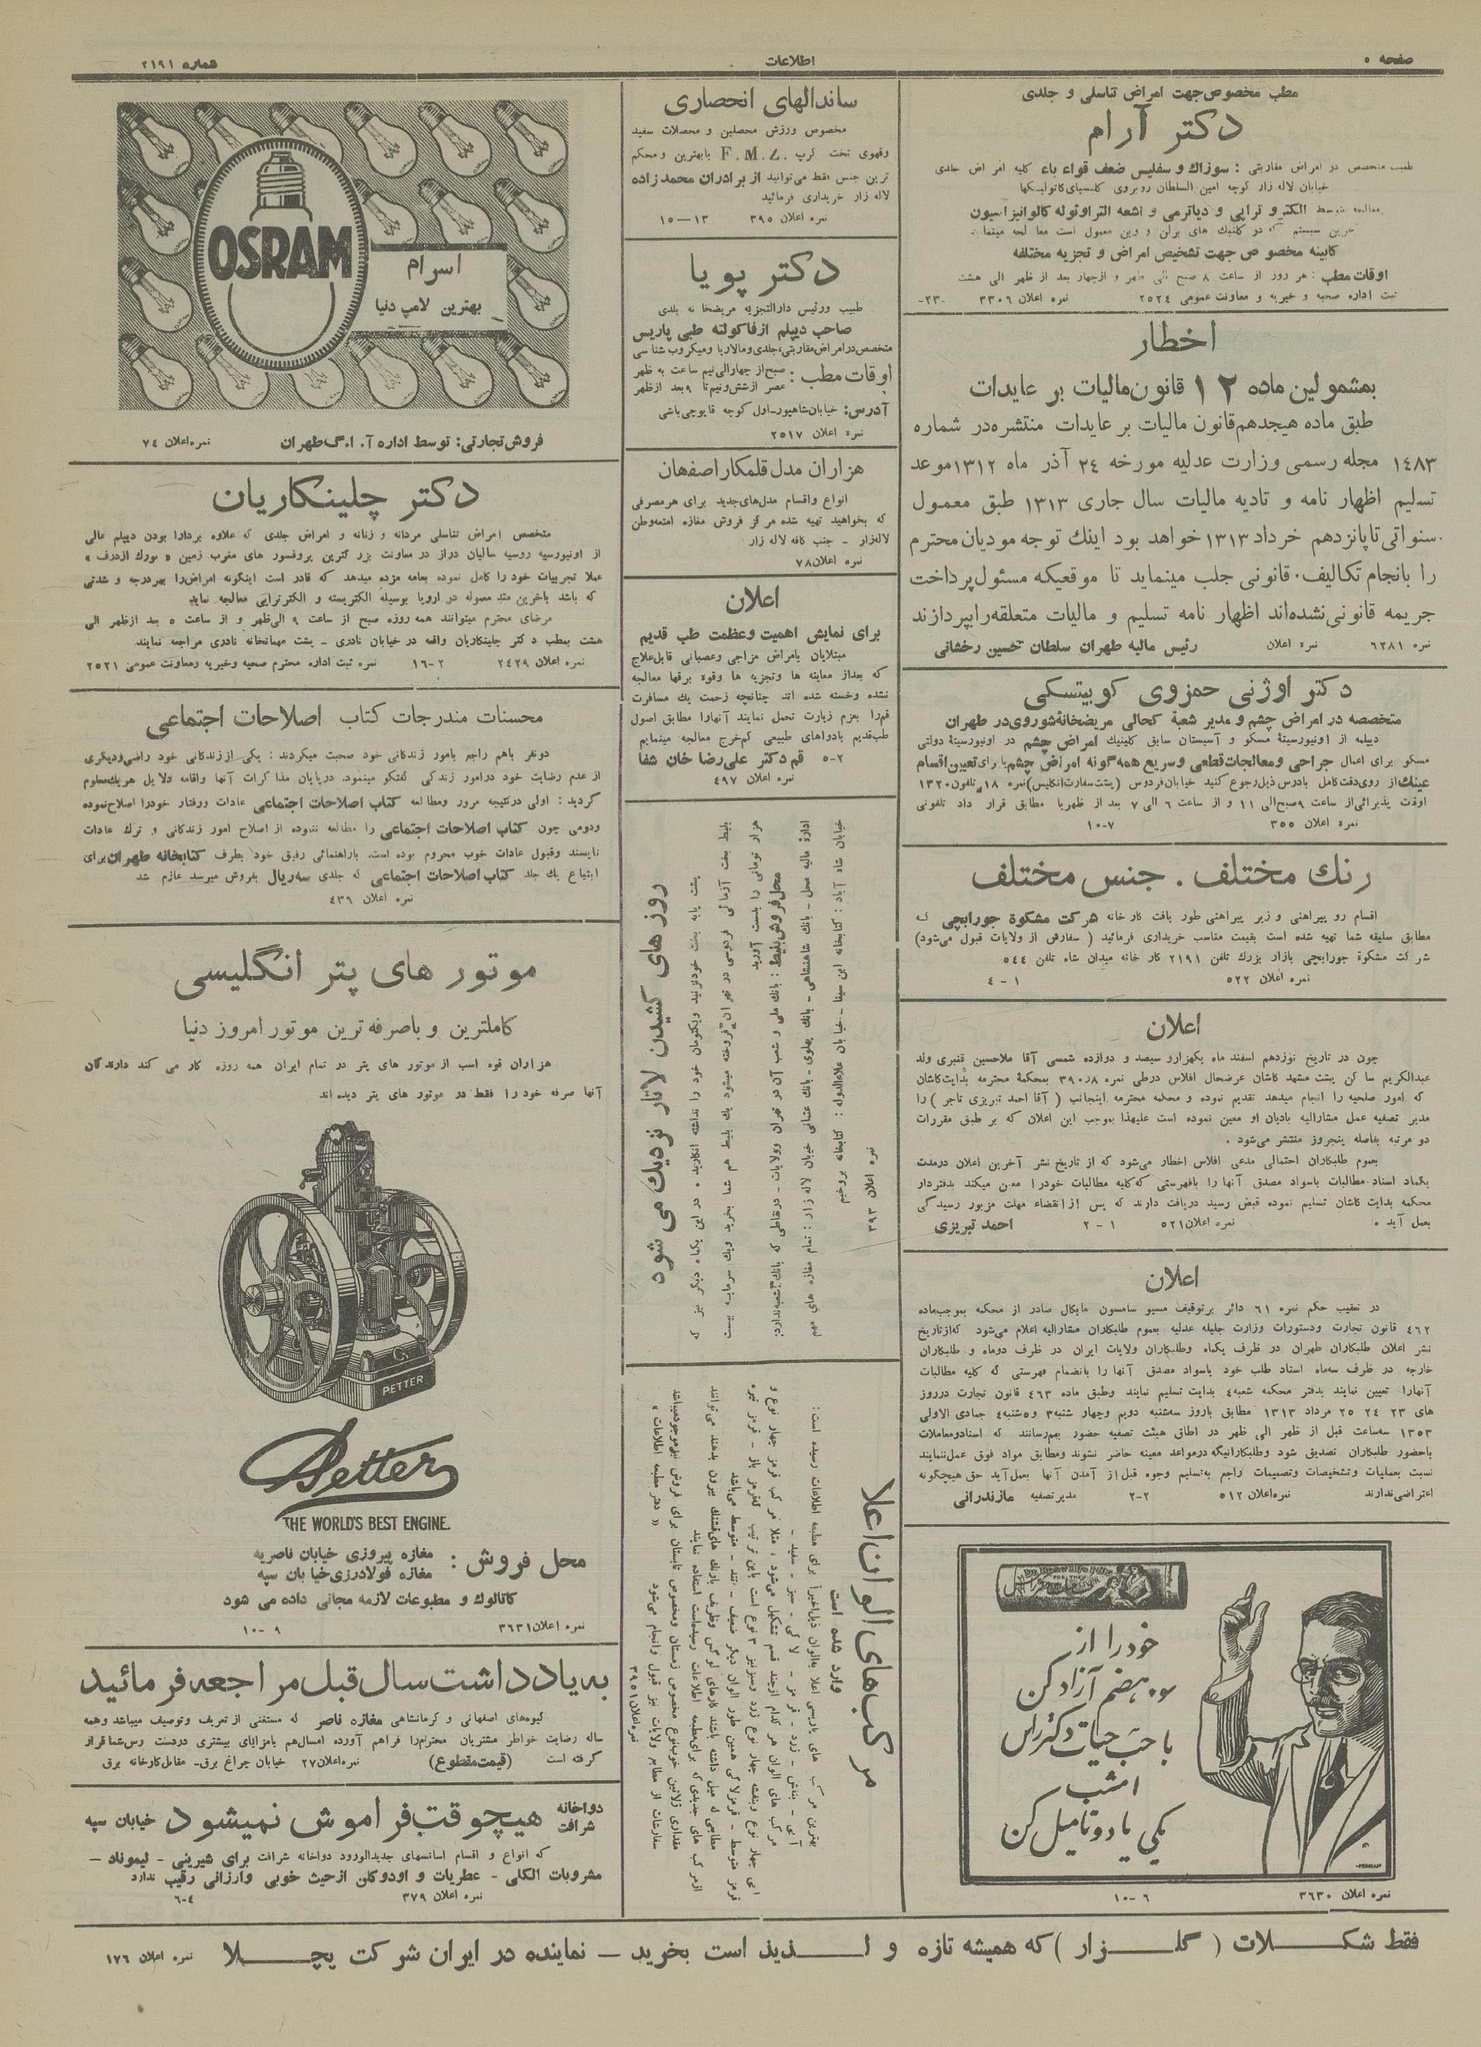 صفحه ۵
اطلاعات
شماره ۲۱۹۱
مطب مخصوص جهت امراض تناسلی و جلدی
دکتر آرام
طبیب متخصص در امراض مقاربتی : سوزاك و سفلیس ضعف قواء باء کلیه امراض جلدی
خیابان لاله زار کوچه امین السلطان روبروی کلیسیای کاتولیکها
معالجه توسط الکترو تراپی و دیاترمی و اشعه التراوئوله کالوانیزاسیون
آخرین سیستم که در کلنیك های برلن و وین معمول است معالجه مینماید
کابینه مخصوص جهت تشخیص امراض و تجزیه مختلفه
اوقات مطب : هر روز از ساعت ۸ صبح الی ظهر و ازچهار بعد از ظهر الی هشت
ثبت اداره صحیه و خیریه و معاونت عمومی ۲۵۲۴ نمره اعلان ۳۳۰۶ ۲۳-
اخطار
بمشمولین ماده ۱۲ قانون مالیات بر عایدات
طبق ماده هیجدهم قانون مالیات بر عایدات منتشره در شماره
۱۴۸۳ مجله رسمی وزارت عدلیه مورخه ۲۴ آذر ماه ۱۳۱۲ موعد
تسلیم اظهار نامه و تادیه مالیات سال جاری ۱۳۱۳ طبق معمول
سنواتی تا پانزدهم خرداد ۱۳۱۳ خواهد بود اینك توجه مودیان محترم
را بانجام تکالیف قانونی جلب مینماید تا موقعیکه مسئول پرداخت
جریمه قانونی نشده‌اند اظهار نامه تسلیم و مالیات متعلقه رابپردازند
نمره ۶۲۸۱ نمره اعلان رئیس مالیه طهران سلطان حسین رخشانی
دکتر اوژنی حمزوی کوبیتسکی
متخصصه در امراض چشم و مدیر شعبهٔ کحالی مریضخانهٔ شوروی در طهران
دیپلمه از اونیورسیتهٔ مسکو و آسیستان سابق کلینیك امراض چشم در اونیورسیتهٔ دولتی
مسکو برای اعمال جراحی و معالجات قطعی و سریع همه گونه امراض چشم یا برای تعیین اقسام
عینك از روی دقت کامل بادرس ذیل رجوع کنید خیابان فردوس (پشت سفارت انگلیس) نمره ۱۸ تلفون ۱۳۲۰
اوقت پذیرائی از ساعت ۹ صبح الی ۱۱ و از ساعت ۶ الی ۷ بعد از ظهر یا مطابق قرار داد تلفونی
نمره اعلان ۳۵۵ ۷-۱۰
رنك مختلف . جنس مختلف
اقسام رو پیراهنی و زیر پیراهنی طور بافت کارخانه شرکت مشکوة جورابچی که
مطابق سلیقه شما تهیه شده است بقیمت مناسب خریداری فرمائید ( سفارش از ولایات قبول می‌شود)
شرکت مشکوة جورابچی بازار بزرك تلفن ۲۱۹۱ کارخانه میدان شاه تلفن ۵۴۴
نمره اعلان ۵۲۲ ۱ - ۴
اعلان
چون در تاریخ نوزدهم اسفند ماه یکهزارو سیصد و دوازده شمسی آقا ملاحسین قنبری ولد
عبدالکریم ساکن پشت مشهد کاشان عرضحال افلاس درطی نمره ۳۹۰۸ بمحکمهٔ محترمه بدایت کاشان
که امور صلحیه را انجام میدهد تقدیم نموده و محکمه محترمه اینجانب ( آقا احمد تبریزی تاجر ) را
مدیر تصفیه عمل مشارالیه بادیان او معین نموده است علیهذا بموجب این اعلان که بر طبق مقررات
دو مرتبه بفاصله پنجروز منتشر می‌شود .
بعموم طلبکاران احتمالی مدعی افلاس اخطار می‌شود که از تاریخ نشر آخرین اعلان درمدت
یکماه اسناد مطالبات باسواد مصدق آنها را بافهرستی که کلیه مطالبات خودرا معین میکند بدفتر دار
محکمه بدایت کاشان تسلیم نموده قبض رسید دریافت دارند که پس از انقضاء مهلت مزبور رسیدگی
بعمل آید . ۱ - ۲ نمره اعلان ۵۲۱ احمد تبریزی
اعلان
در تعقیب حکم نمره ۶۱ دائر برتوقیف مسیو سامسون مایکال صادر از محکمه بموجب ماده
۴۶۲ قانون تجارت ودستورات وزارت جلیله عدلیه بعموم طلبکاران مشارالیه اعلام می‌شود که از تاریخ
نشر اعلان طلبکاران طهران در ظرف یکماه وطلبکاران ولایات ایران در ظرف دوماه و طلبکاران
خارجه در ظرف سه‌ماه اسناد طلب خود باسواد مصدق آنها را بانضمام فهرستی که کلیه مطالبات
آنهارا تعیین نمایند بدفتر محکمه شعبه ۴ بدایت تسلیم نمایند وطبق ماده ۴۶۳ قانون تجارت درروز
های ۲۳ ۲۴ ۲۵ مرداد ۱۳۱۳ مطابق باروز سه‌شنبه دویم وچهار شنبه ۳ و ۵ شنبه ۴ جمادی الاولی
۱۳۵۳ سه‌ساعت قبل از ظهر الی ظهر در اطاق هیئت تصفیه حضور بهمرسانند که اسنادومعاملات
باحضور طلبکاران تصدیق شود وطلبکارانیکه درمواعد معینه حاضر نشوند ومطابق مواد فوق عمل ننمایند
نسبت بعملیات وتشخیصات وتصمیمات راجع به تسلیم وجوه قبل از آمدن آنها بعمل آید حق هیچگونه
اعتراضی ندارند نمره اعلان ۵۱۲ ۲-۲ مدیر تصفیه مازندرانی
خود را از
سوء هضم آزاد کن
با حب حیات دکتر راس
امشب
یکی یا دو تا میل کن
نمره اعلان ۳۶۳۰ ۶ -۱۰
ساندالهای انحصاری
مخصوص ورزش محصلین و محصلات سفید
وقهوی تخت کرپ F.M.Z. بابهترین و محکم
ترین جنس فقط می‌توانید از برادران محمدزاده
لاله زار خریداری فرمائید
نمره اعلان ۳۹۵ ۱۳—۱۵
دکتر پویا
طبیب ورئیس دارالتجزیه مریضخانه بلدی
صاحب دیپلم از فاکولته طبی پاریس
متخصص در امراض مقاربتی، جلدی ومالاریا ومیکروب شناسی
اوقات مطب : صبح از چهار الی نیم ساعت به ظهر
عصر از شش ونیم تا ۹ بعد از ظهر
آدرس: خیابان شاهپور-اول کوچه قاپوچی باشی
نمره اعلان ۲۵۱۷
هزاران مدل قلمکار اصفهان
انواع واقسام مدل‌های جدید برای هر مصرفی
که بخواهید تهیه شده مرکز فروش مغازه امتعه وطن
لاله‌زار - جنب کافه لاله زار
نمره اعلان ۷۸
اعلان
برای نمایش اهمیت وعظمت طب قدیم
مبتلایان بامراض مزاجی وعصبانی قابل علاج
که بعداز معاینه ها وتجزیه ها وقوه برقها معالجه
نشده وخسته شده اند چنانچه زحمت یك مسافرت
قم را بعزم زیارت تحمل نمایند آنهارا مطابق اصول
طب قدیم بادواهای طبیعی کم خرج معالجه مینمایم
۲-۵ قم دکتر علی رضا خان شفا
نمره اعلان ۴۹۷
روزهای کشیدن لاتار نزدیك می شود
پشت پابه بخت خودنزنید وبکتومان خود را نداشته انگارید . در این یکماه دیگر نیز که
بلیط بخت آزمائی فردوسی در تهران فروخته میشود یك بلیط هم شما بخرید ویك سرمایه بیست
هزار تومانی را بدست آورید
محل فروش بلیط : بانك ملی و شعب آن در تهران وولایات - درنقاطی که بانك شعبه ندارد:
ادارهٔ مالیه محل - بانك شاهنشاهی - بانك پهلوی - بانك عثمانی خیابان لاله زار : تمام مغازه های مهم
خیابان شاه آباد : کتابخانه ابن سینا - خیابان علاءالدوله : کتابخانه بروخیم
نمره اعلان ۳۹۳
مرکب‌های الوان اعلا
وارد شده است
بهترین مرکب های پاریسی اعلا بالوان ذیل اخیراً برای مطبعه اطلاعات رسیده است :
آبی - بنفش - زرد - قرمز - لاکی - سبز - سفید -
مرکب های الوان هر کدام ازچند قسم تشکیل می‌شود ، مثلا مرکب قرمز چهار نوع و
آبی چهار نوع وبنفش چهار نوع زرد وسبز نیز ۳ نوع است باین ترتیب که قرمز باز - قرمز تیره
قرمز متوسط - قرمز لاکی همین طور الوان دیگر ضعیف - تند - متوسط می‌باشد
مطابعی که میل داشته باشند کارهای لوکس وظریف بارنك های قشنك بیرون بدهند می‌توانند
ازمرکب های جدیدی که برای مطبعه اطلاعات رسیده است استفاده نمایند
مقداری ژلاتین خوب نوع مخصوص زمستان ومخصوص تابستان برای فروش نیز موجود میباشد
سفارشات از مطابع ولایات نیز قبول وانجام می‌شود « دفتر مطبعه اطلاعات »
نمره اعلان ۳۹۵۱
OSRAM
اسرام
بهترین لامپ دنیا
فروش تجارتی: توسط اداره آ. ا. گ طهران نمره اعلان ۷۴
دکتر چلینکاریان
متخصص امراض تناسلی مردانه و زنانه و امراض جلدی که علاوه بردارا بودن دیپلم عالی
از اونیورسیه روسیه سالیان دراز در معاونت بزرگترین پروفسور های مغرب زمین
عملا تجربیات خود را کامل نموده بعامه مژده میدهد که قادر است اینگونه امراض را بهردرجه و شدتی
که باشد باخرین متد معموله در اروپا بوسیله الکتریسته و الکتروتراپی معالجه نماید
مرضای محترم میتوانند همه روزه صبح از ساعت ۹ الی ظهر و از ساعت ۵ بعد ازظهر الی
هشت بمطب دکتر چلینکاریان واقعه در خیابان نادری - پشت مهمانخانه نادری مراجعه نمایند.
نمره اعلان ۲۴۲۹ ۲-۱۶ نمره ثبت اداره محترم صحیه وخیریه ومعاونت عمومی ۲۵۲۱
محسنات مندرجات کتاب اصلاحات اجتماعی
دونفر باهم راجع بامور زندگانی خود صحبت میکردند : یکی از زندگانی خود راضی ودیگری
از عدم رضایت خود درامور زندگی گفتگو مینمود. درپایان مذاکرات آنها واقامه دلایل هریك معلوم
گردید : اولی درنتیجه مرور ومطالعه کتاب اصلاحات اجتماعی عادات ورفتار خودرا اصلاح نموده
ودومی چون کتاب اصلاحات اجتماعی را مطالعه ننموده از اصلاح امور زندگانی و ترك عادات
ناپسند وقبول عادات خوب محروم بوده است. باراهنمائی رفیق خود بطرف کتابخانه طهران برای
ابتیاع یك جلد کتاب اصلاحات اجتماعی که جلدی سه ریال بفروش میرسد عازم شد
نمره اعلان ۴۳۶
موتور های پتر انگلیسی
کاملترین و باصرفه ترین موتور امروز دنیا
هزاران قوه اسب از موتور های پتر در تمام ایران همه روزه کار می کند دارندگان
آنها صرفه خود را فقط در موتور های پتر دیده اند
PETTER
Petter
THE WORLD'S BEST ENGINE.
محل فروش : مغازه پیروزی خیابان ناصریه
مغازه فولادرزی خیابان سپه
کاتالوك و مطبوعات لازمه مجانی داده می شود
نمره اعلان ۳۶۳۱ ۹ -۱۰
به یادداشت سال قبل مراجعه فرمائید
گیوه‌های اصفهانی و کرمانشاهی مغازه ناصر که مستغنی از تعریف وتوصیف میباشد وهمه
ساله رضایت خاطر مشتریان محترم را فراهم آورده امسال هم بامزایای بیشتری دردست رس شما قرار
گرفته است (قیمت مقطوع) نمره اعلان ۲۷ خیابان چراغ برق- مقابل کارخانه برق
دواخانه شرافت هیچوقت فراموش نمیشود خیابان سپه
که انواع و اقسام اسانسهای جدیدالورود دواخانه شرافت برای شیرینی - لیموناد -
مشروبات الکلی - عطریات و اودوکلن از حیث خوبی وارزانی رقیب ندارد
نمره اعلان ۳۷۹ ۴-۶
فقط شکلات ( گلزار ) که همیشه تازه و لذیذ است بخرید - نماینده در ایران شرکت یچلا نمره اعلان ۱۷۶